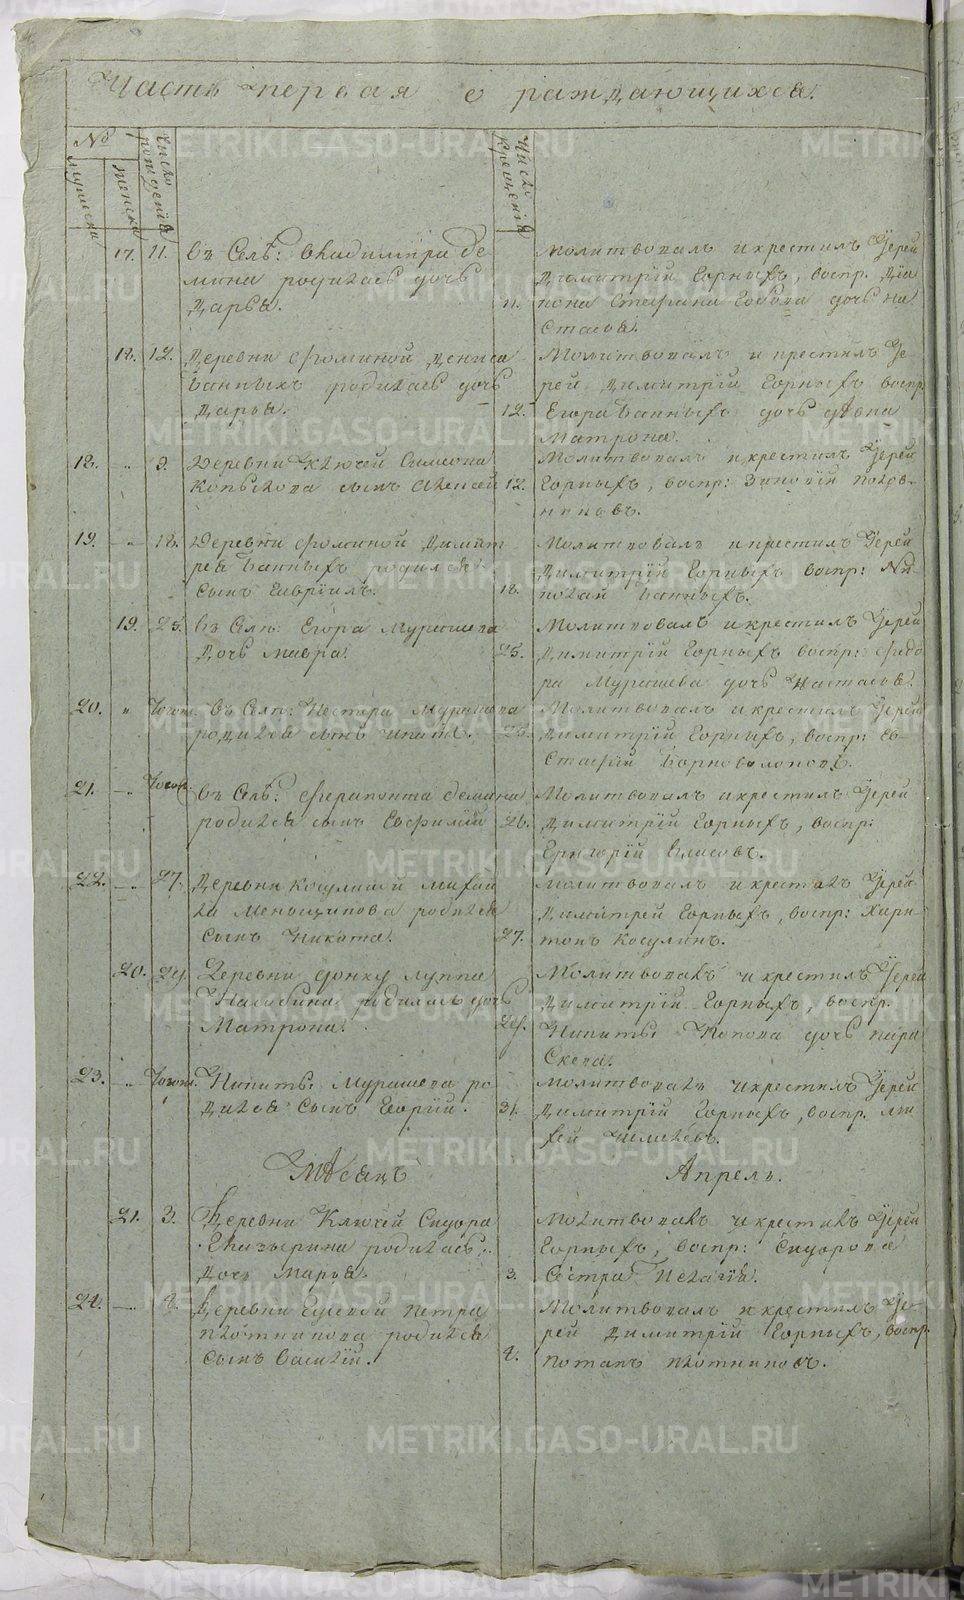 Часть первая о раждающихся.
№
мужеска
женска
Число рождения
Число крещения
17. 11. въ Селѣ: Владимира Де
мина родилась дочь
Дарья.
Молитвовалъ и крестилъ Іерей
Димитрій Горныхъ, воспр. Діа
11. кона Стефана дочь На
стасья.
18. 12. Деревни Фоминой Дениса
Банныхъ родилась дочь
Дарья.
Молитвовалъ и крестилъ Іе
рей Димитрій Горныхъ воспр
12. Егора Банныхъ дочь дѣвка
Матрона.
18. -"- 9. Деревни Ключей Симеона
Копылова сынъ Алексей
Молитвовалъ и крестилъ Іерей
12. Горныхъ, воспр: Зиновій
19. -"- 18. Деревни Фоминой Димит
рея Банныхъ родился
сынъ Гавріилъ.
Молитвовалъ и крестилъ Іерей
Димитрій Горныхъ воспр: Ни
18. колай Банныхъ.
19. 25. въ Селѣ: Егора Мурашева
дочь Мавра.
Молитвовалъ и крестилъ Іерей
25. Димитрій Горныхъ, воспр: Федо
ра Мурашева дочь Настасья.
20. " Тогож. въ Селѣ: Нестера Мурашева
родился сынъ
Молитвовалъ и крестилъ Іерей
25. Димитрій Горныхъ, воспр: Ев-
стафій
21. -"- Тогож. въ Селѣ: Ферапонта Демина
родился сынъ Евфимій
Молитвовалъ и крестилъ Іерей
26. Димитрій Горныхъ, воспр:
Григорій Власовъ.
22. -"- 27. Деревни Косулиной Михаи
ла Меньщикова родился
сынъ Никита.
Молитвовалъ и крестилъ Іерей
Димитрей Горныхъ, воспр: Хари-
27. тонъ Косулинъ.
20. 29. Деревни Луппа
родилась дочь
Матрона.
Молитвовалъ и крестилъ Іерей
Димитрій Горныхъ, воспр.
29. Никиты Попова дочь Пара
скева.
23. -"- Тогож. Никиты Мурашева ро
дился сынъ Георгій.
Молитвовалъ и крестилъ Іерей
31. Димитрій Горныхъ, воспр.
Мѣсяцъ
Апрель.
21. 3. Деревни Ключей Сидора
родилась
дочь Марья.
Молитвовалъ и крестилъ Іерей
Горныхъ, воспр: Сидорова
3. Сестра Пелагія.
24. -"- 4. Деревни Гусевой Петра
Плотникова родился
сынъ Василій.
Молитвовалъ и крестилъ Іе-
рей Димитрій Горныхъ, воспр.
4. Потапъ Плотниковъ.
METRIKI.GASO-URAL.RU